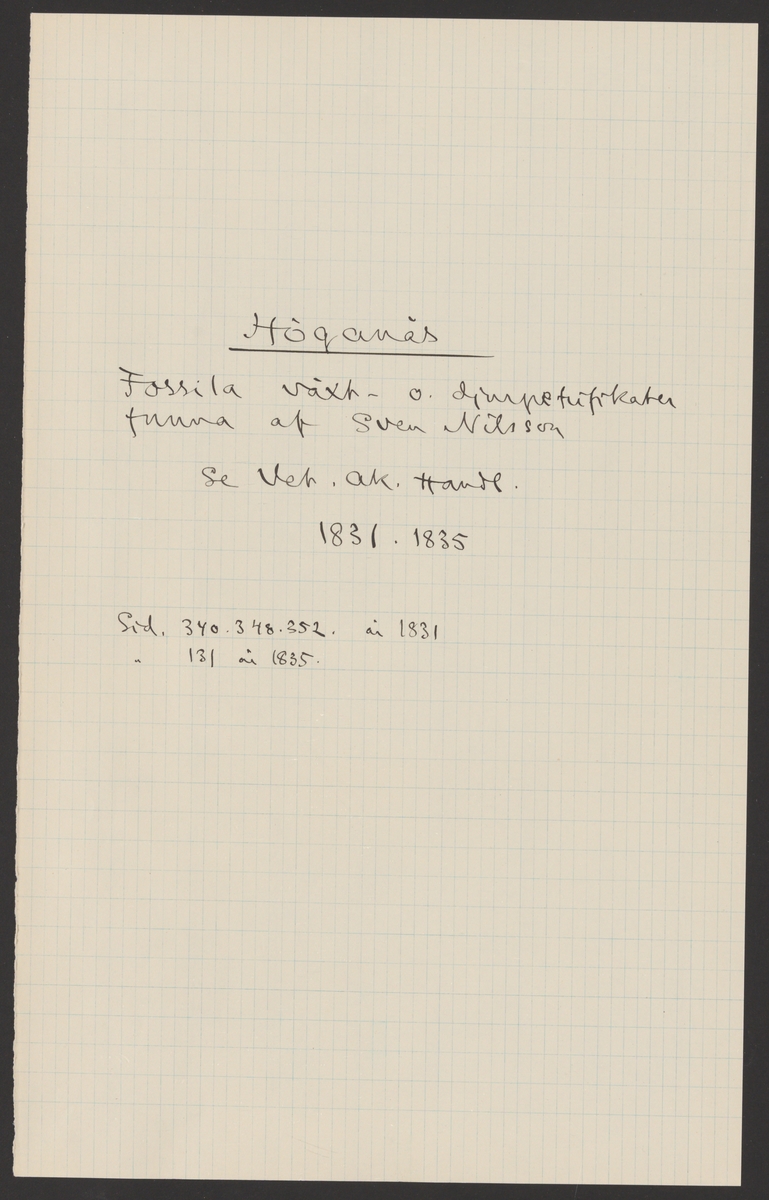 Höganäs
Fossila växt- o. djurpetrifikater
funna af Sven Nilsson
Se Vet. ak. Handl.
1831. 1835
Sid. 340. 348. 352. år 1831
" 131 år 1835.